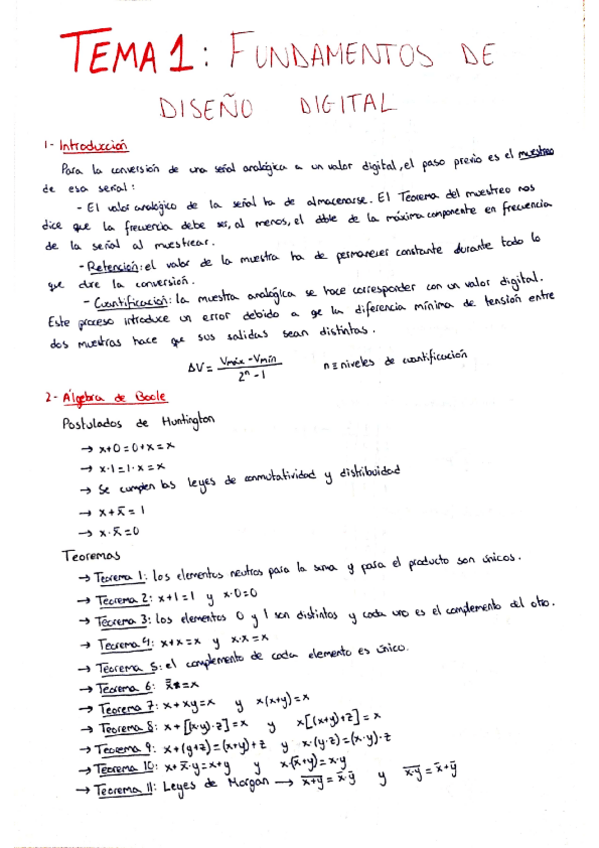 TEMA 1: FUNDAMENTOS DE
DISEÑO DIGITAL
1- Introducción
Para la conversión de una señal analógica a un valor digital, el paso previo es el muestreo
de esa señal:
- El valor analógico de la señal ha de almacenarse. El Teorema del muestreo nos
dice que la frecuencia debe ser, al menos, el doble de la máxima componente en frecuencia
de la señal al muestrear.
- Retención: el valor de la muestra ha de permanecer constante durante todo lo
que dure la conversión.
- Cuantificación: la muestra analógica se hace corresponder con un valor digital.
Este proceso introduce un error debido a qe la diferencia mínima de tensión entre
dos muestras hace que sus salidas sean distintas.
ΔV = (Vmáx - Vmín) / (2ⁿ - 1)   n ≡ niveles de cuantificación
2- Álgebra de Boole
Postulados de Huntington
→ x+0=0+x=x
→ x·1=1·x=x
→ Se cumplen las leyes de conmutatividad y distribuidad
→ x+x̄=1
→ x·x̄=0
Teoremas
→ Teorema 1: los elementos neutros para la suma y para el producto son únicos.
→ Teorema 2: x+1=1 y x·0=0
→ Teorema 3: los elementos 0 y 1 son distintos y cada uno es el complemento del otro.
→ Teorema 4: x+x=x y x·x=x
→ Teorema 5: el complemento de cada elemento es único.
→ Teorema 6: x̿=x
→ Teorema 7: x+xy=x y x(x+y)=x
→ Teorema 8: x+[(x·y)·z]=x y x[(x+y)+z]=x
→ Teorema 9: x+(y+z)=(x+y)+z y x·(y·z)=(x·y)·z
→ Teorema 10: x+x̄·y=x+y y x·(x̄+y)=x·y
→ Teorema 11: Leyes de Morgan → x̅+̅y̅=x̄·ȳ y x̅·̅y̅=x̄+ȳ